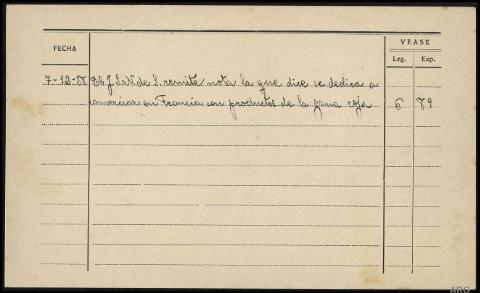 VEASE
FECHA
Leg. Exp.
7-12-38 El J. S.N. de S. remite nota la que dice se dedica a
comerciar en Francia con productos de la zona roja 6 79
ARG